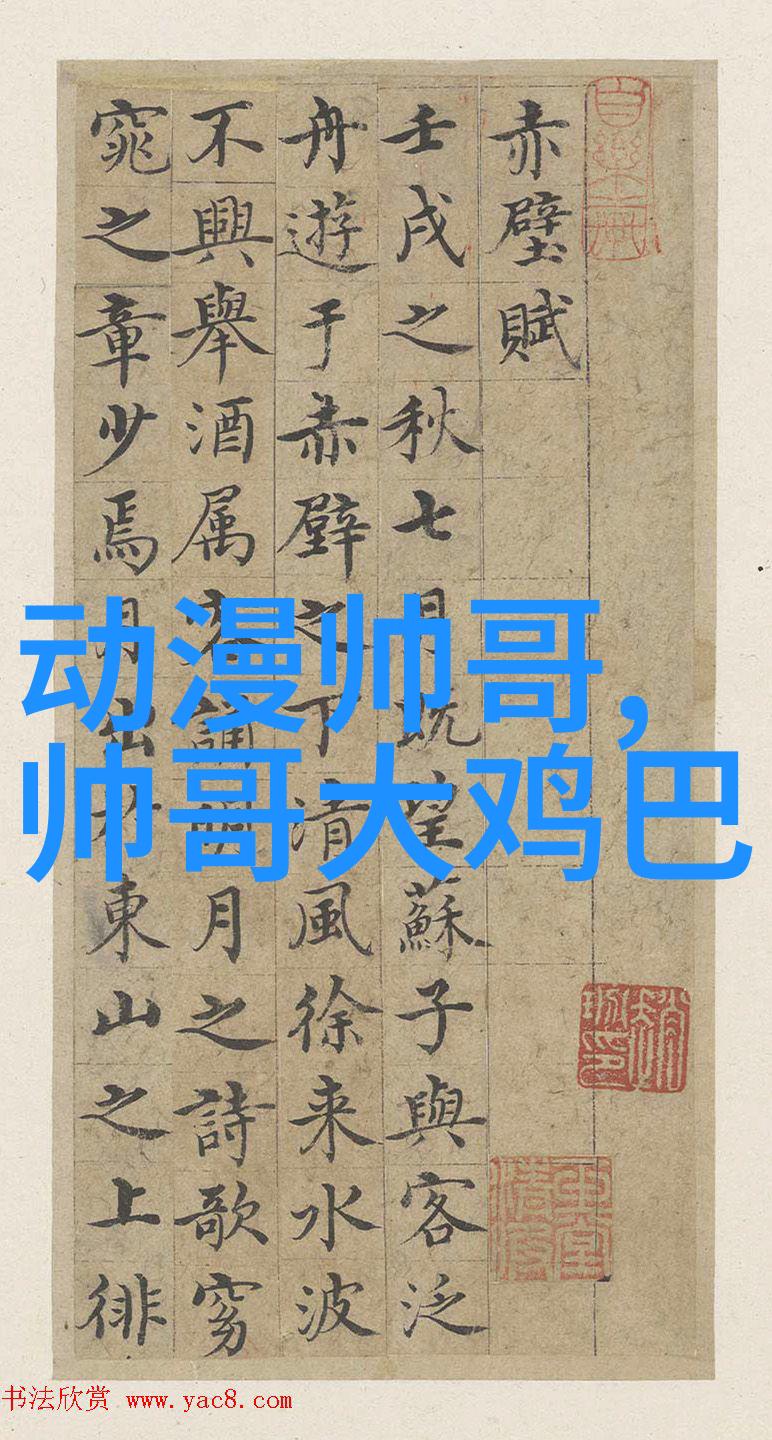 赤壁賦
壬戌之秋七月既望蘇子與客泛
舟遊于赤壁之下清風徐来水波
不興舉酒属客誦明月之詩歌窈
窕之章少焉月出於東山之上徘
动漫帅哥,
帅哥大鸡巴
书法欣赏 www.yac8.com